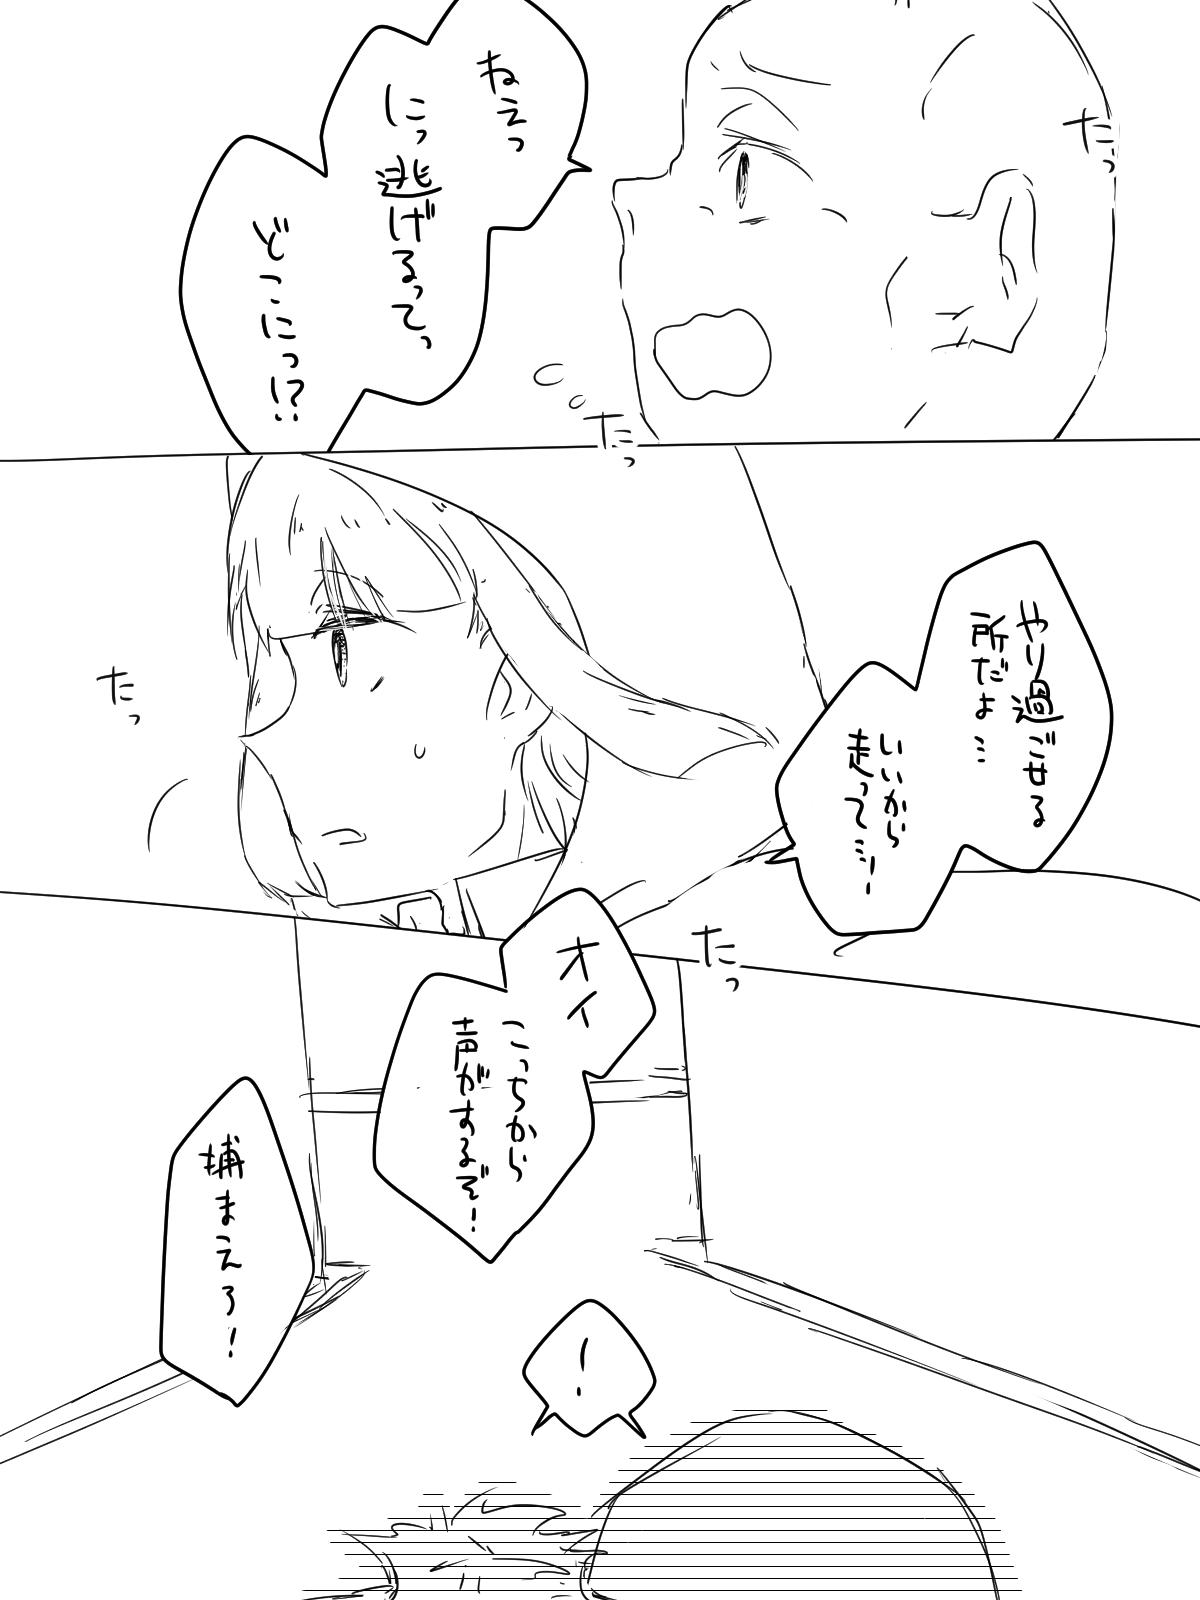 ねえっ
にっ逃げるって、っ
どこにっ!?
たっ
たっ
やり過ごせる
所だよ…
いいから
走って…!!
たっ
たっ
オイ
こっちから
声がするぞ!
捕まえろ!
!